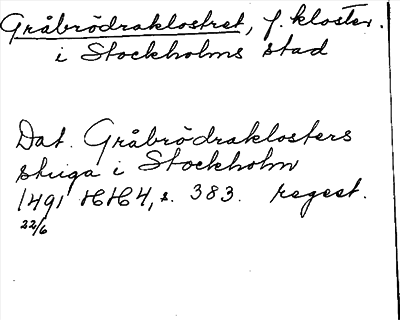 Gråbrödraklostret, f. kloster.
i Stockholms stad
Dat. Gråbrödraklosters
stuga i Stockholm
1491 HH4, s. 383. regest.
22/6